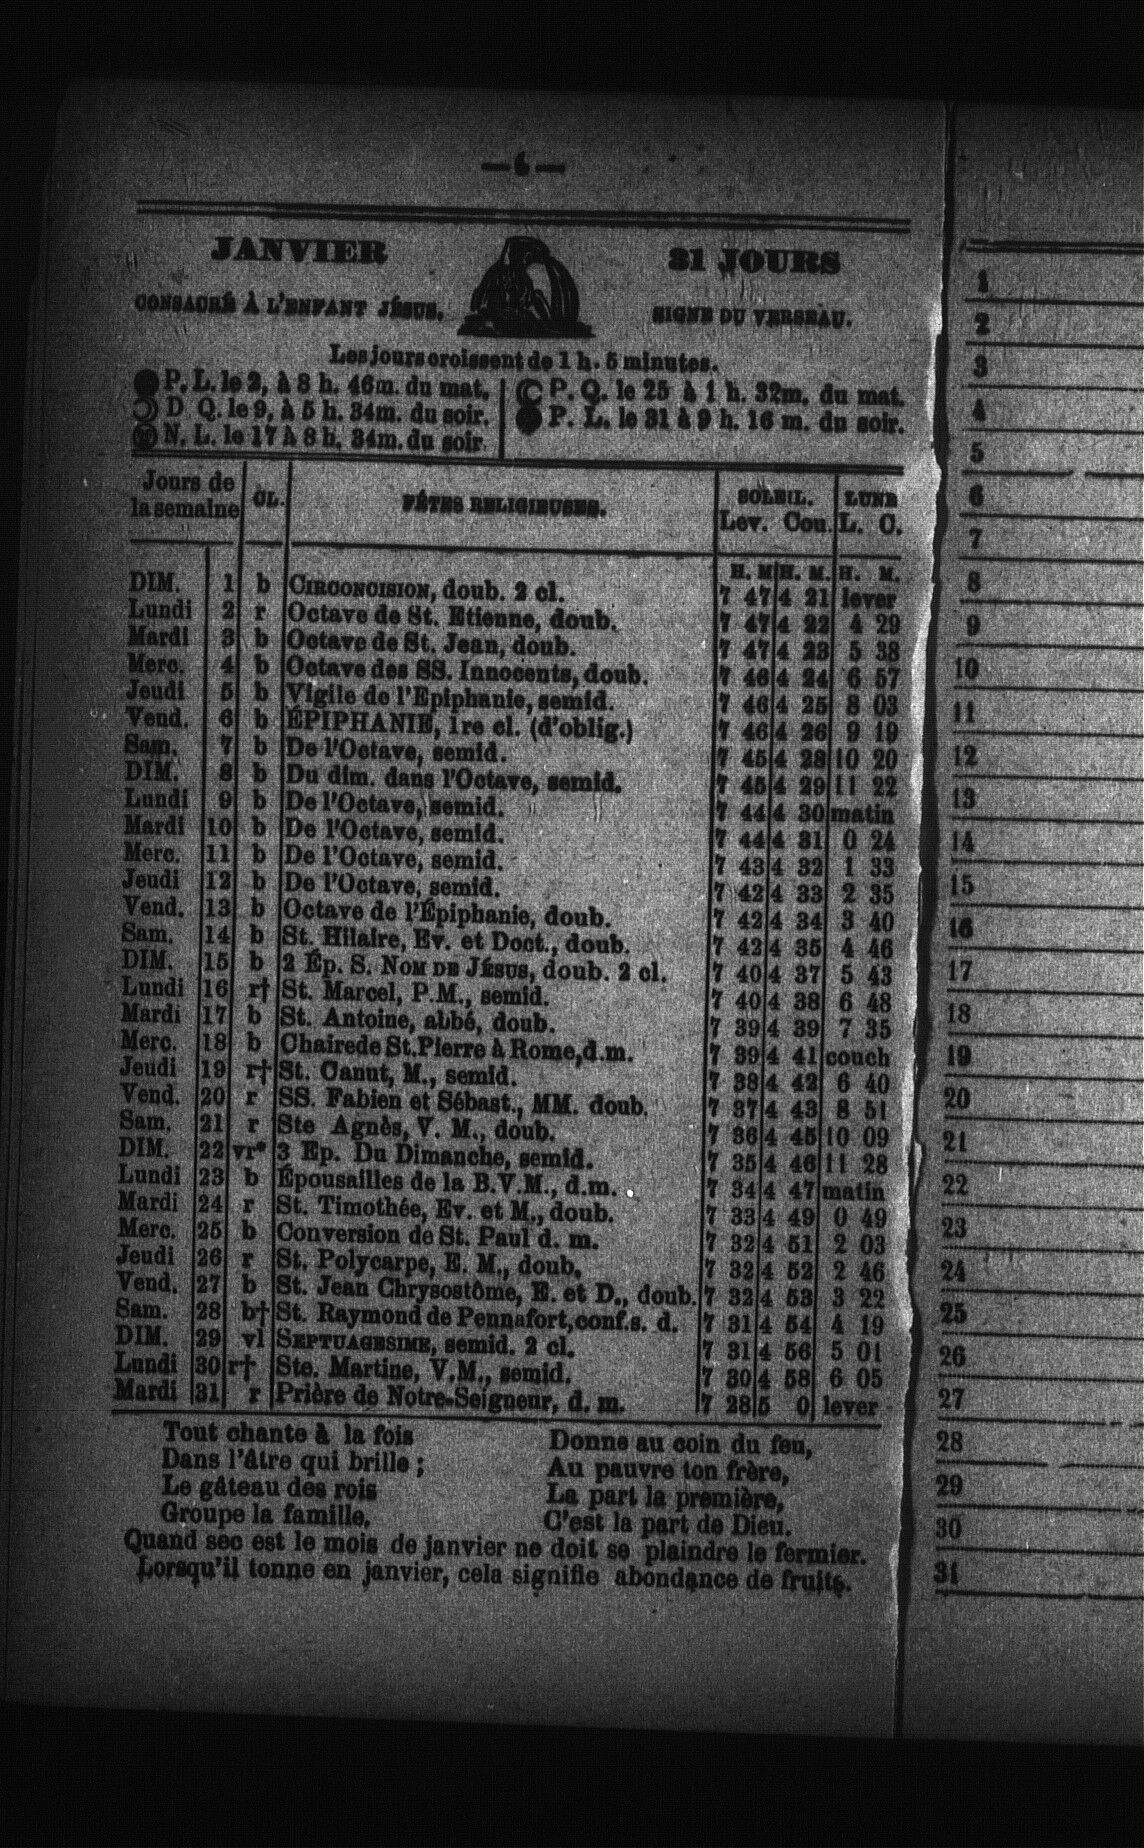 JANVIER
31 JOURS
CONSACRÉ À L'ENFANT JÉSUS.
SIGNE DU VERSEAU.
Les jours croissent de 1 h. 5 minutes.
P. L. le 2, à 8 h. 46m. du mat.
D Q. le 9, à 5 h. 34m. du soir.
N. L. le 17 à 8 h. 34m. du soir.
P. Q. le 25 à 1 h. 32m. du mat.
P. L. le 31 à 9 h. 16 m. du soir.
Jours de la semaine CL. FÊTES RELIGIEUSES. SOLEIL. Lev. Cou. LUNE L. C.
H. M H. M. H. M.
DIM. 1 b CIRCONCISION, doub. 2 cl. 7 47 4 21 lever
Lundi 2 r Octave de St. Etienne, doub. 7 47 4 22 4 29
Mardi 3 b Octave de St. Jean, doub. 7 47 4 23 5 38
Merc. 4 b Octave des SS. Innocents, doub. 7 46 4 24 6 57
Jeudi 5 b Vigile de l'Epiphanie, semid. 7 46 4 25 8 03
Vend. 6 b ÉPIPHANIE, 1re cl. (d'oblig.) 7 46 4 26 9 19
Sam. 7 b De l'Octave, semid. 7 45 4 28 10 20
DIM. 8 b Du dim. dans l'Octave, semid. 7 45 4 29 11 22
Lundi 9 b De l'Octave, semid. 7 44 4 30 matin
Mardi 10 b De l'Octave, semid. 7 44 4 31 0 24
Merc. 11 b De l'Octave, semid. 7 43 4 32 1 33
Jeudi 12 b De l'Octave, semid. 7 42 4 33 2 35
Vend. 13 b Octave de l'Épiphanie, doub. 7 42 4 34 3 40
Sam. 14 b St. Hilaire, Ev. et Doct., doub. 7 42 4 35 4 46
DIM. 15 b 2 Ép. S. NOM DE JÉSUS, doub. 2 cl. 7 40 4 37 5 43
Lundi 16 r† St. Marcel, P.M., semid. 7 40 4 38 6 48
Mardi 17 b St. Antoine, abbé, doub. 7 39 4 39 7 35
Merc. 18 b Chaire de St. Pierre à Rome, d.m. 7 39 4 41 couch
Jeudi 19 r† St. Canut, M., semid. 7 38 4 42 6 40
Vend. 20 r SS. Fabien et Sébast., MM. doub. 7 37 4 43 8 51
Sam. 21 r Ste Agnès, V. M., doub. 7 36 4 45 10 09
DIM. 22 vr* 3 Ep. Du Dimanche, semid. 7 35 4 46 11 28
Lundi 23 b Épousailles de la B.V.M., d.m. 7 34 4 47 matin
Mardi 24 r St. Timothée, Ev. et M., doub. 7 33 4 49 0 49
Merc. 25 b Conversion de St. Paul d. m. 7 32 4 51 2 03
Jeudi 26 r St. Polycarpe, E. M., doub. 7 32 4 52 2 46
Vend. 27 b St. Jean Chrysostôme, E. et D., doub. 7 32 4 53 3 22
Sam. 28 b† St. Raymond de Pennafort, conf. s. d. 7 31 4 54 4 19
DIM. 29 vl SEPTUAGESIME, semid. 2 cl. 7 31 4 56 5 01
Lundi 30 r† Ste. Martine, V.M., semid. 7 30 4 58 6 05
Mardi 31 r Prière de Notre-Seigneur, d. m. 7 28 5 0 lever
Tout chante à la fois
Dans l'âtre qui brille ;
Le gâteau des rois
Groupe la famille.
Donne au coin du feu,
Au pauvre ton frère,
La part la première,
C'est la part de Dieu.
Quand sec est le mois de janvier ne doit se plaindre le fermier.
Lorsqu'il tonne en janvier, cela signifie abondance de fruits.
1
2
3
4
5
6
7
8
9
10
11
12
13
14
15
16
17
18
19
20
21
22
23
24
25
26
27
28
29
30
31